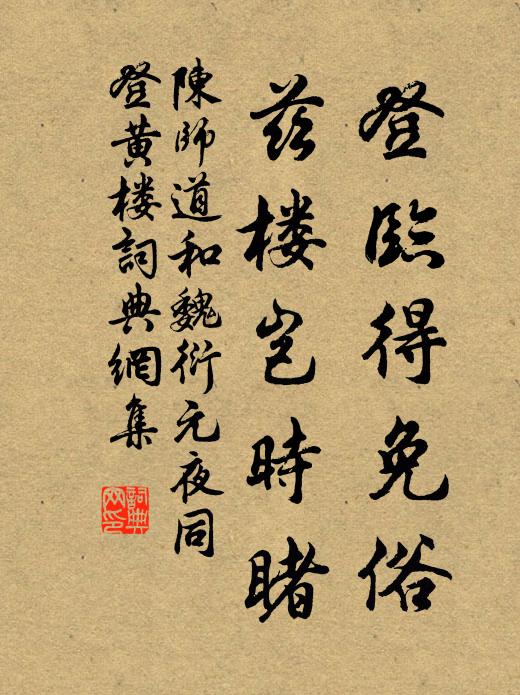 登臨得免俗
茲楼豈時睹
陳師道和魏衍元夜同
登黄楼詞典網集
詞典
网印